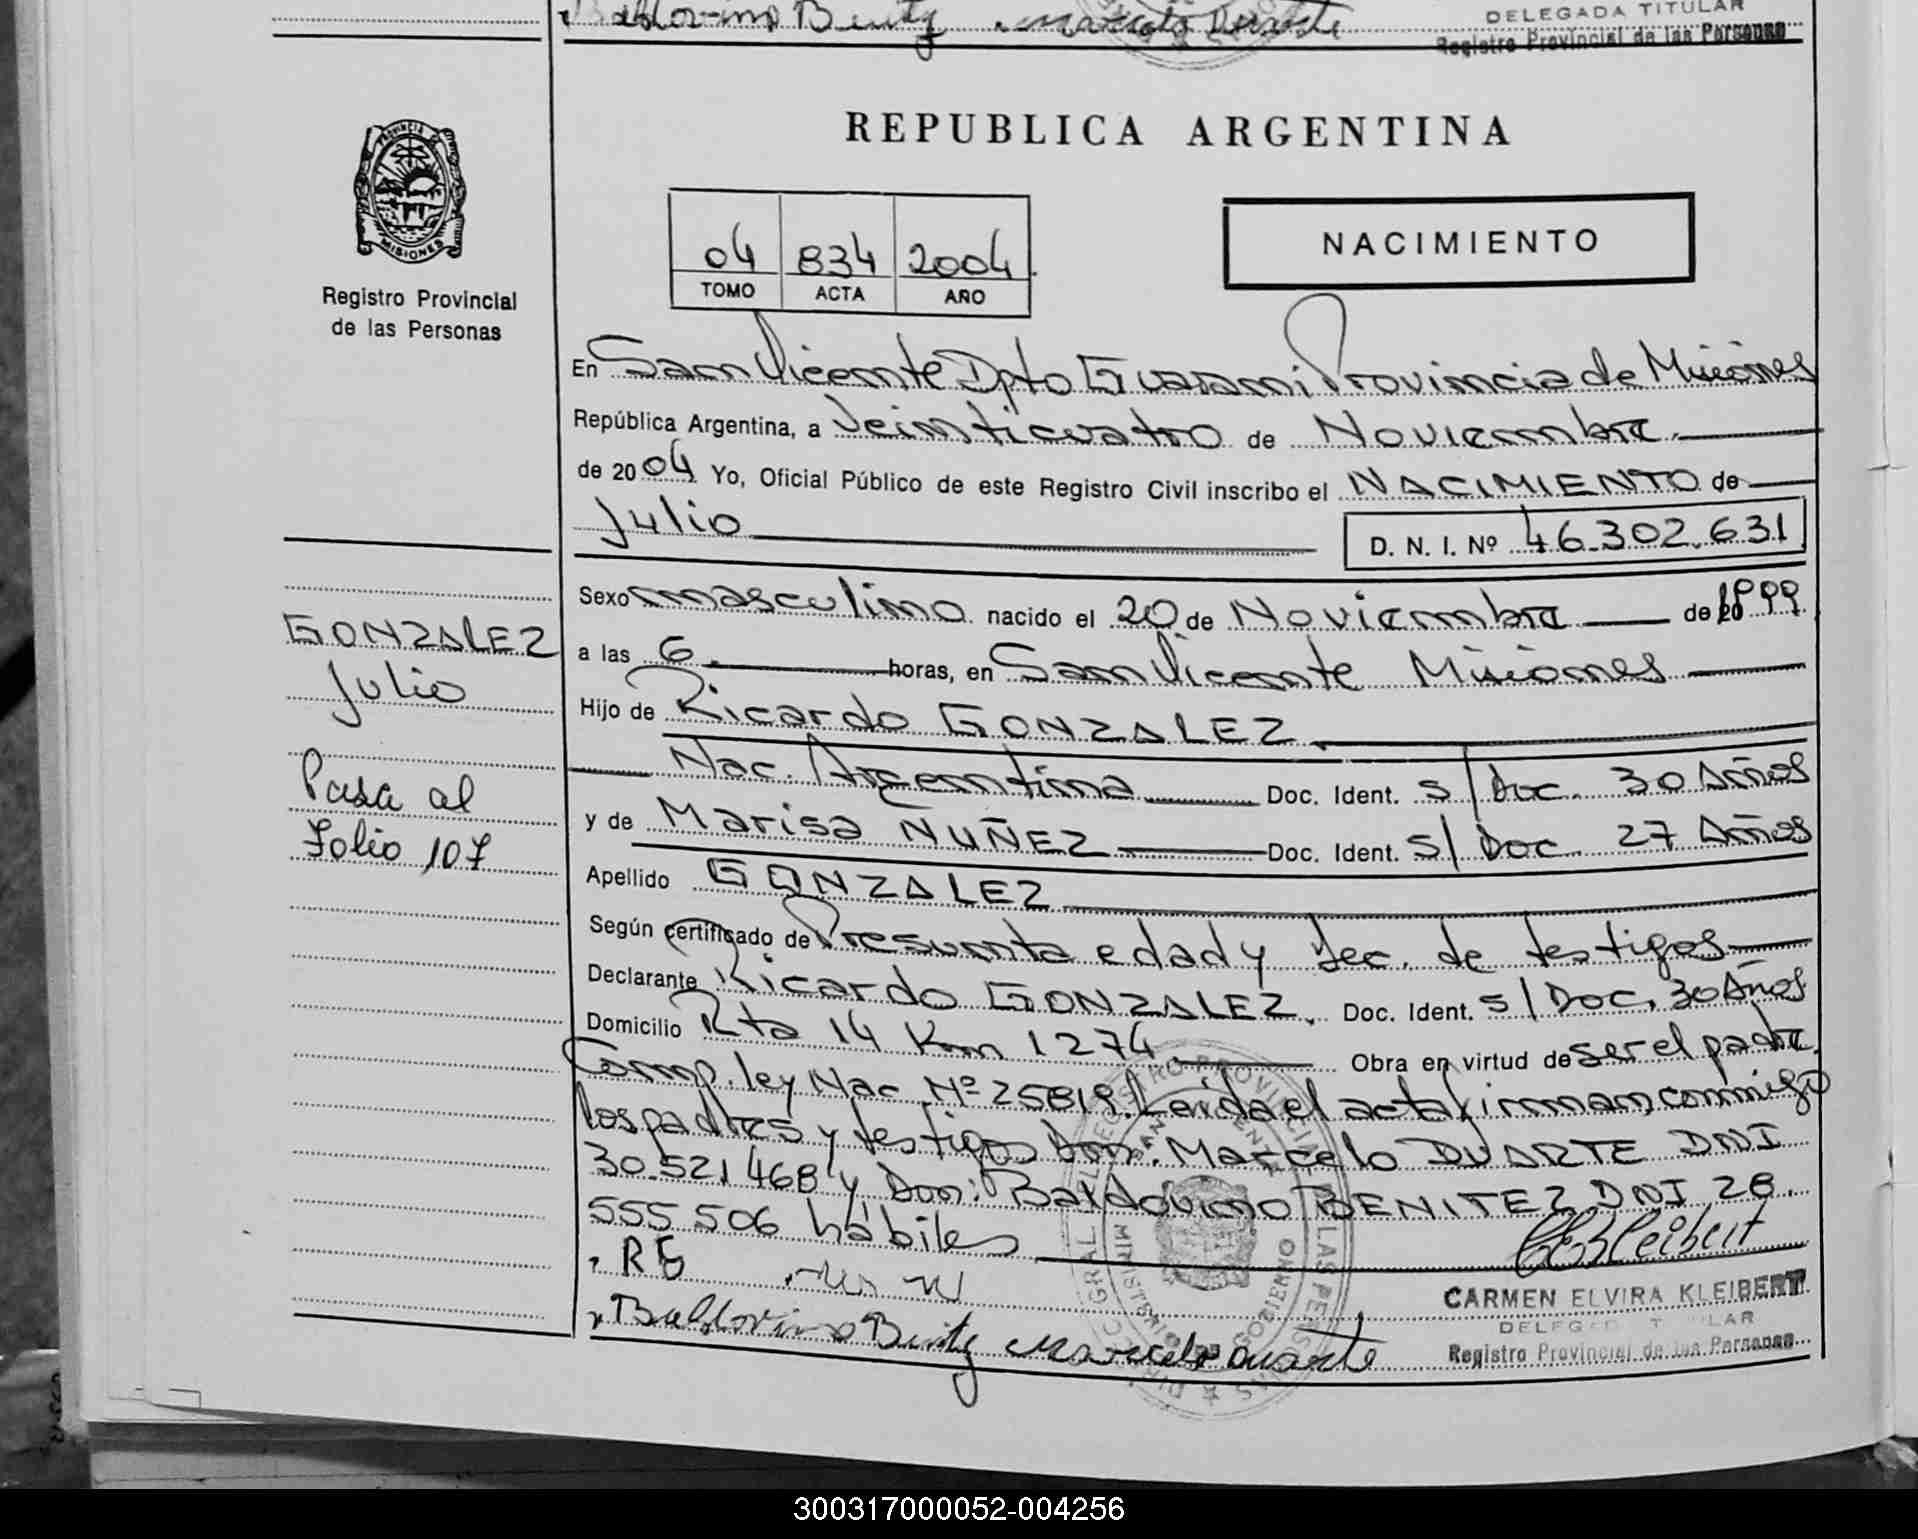 Baldovino Benitez Marcelo Duarte
DELEGADA TITULAR
Registro Provincial de las Personas
REPUBLICA ARGENTINA
PROVINCIA DE
MISIONES
Registro Provincial
de las Personas
04 834 2004
TOMO ACTA AÑO
NACIMIENTO
En San Vicente Dpto Guarani Provincia de Misiones
República Argentina, a Veinticuatro de Noviembre
de 2004 Yo, Oficial Público de este Registro Civil inscribo el NACIMIENTO de
Julio
D. N. I. Nº 46.302.631
Sexo masculino nacido el 20 de Noviembre de 1999
a las 6 horas, en San Vicente Misiones
Hijo de Ricardo GONZALEZ
Nac. Argentina Doc. Ident. S/Doc. 30 Años
y de Marisa NUÑEZ Doc. Ident. S/Doc 27 Años
Apellido GONZALEZ
Según certificado de Presunta edad y dec. de testigos
Declarante Ricardo GONZALEZ, Doc. Ident. S/Doc, 30 Años
Domicilio Rta 14 Km 1274 Obra en virtud de ser el padre.
Comp. ley Nac Nº 25819. Leida el acta firman conmigo
los padres y testigos Don: Marcelo DUARTE DNI
30.521.468 y Don: Baldovino BENITEZ DNI 28.
555 506 hábiles
RG
Baldovino Benitez Marcelo Duarte
CEKleibert
CARMEN ELVIRA KLEIBERT
DELEGADA TITULAR
Registro Provincial de las Personas
GONZALEZ
Julio
Pasa al
Folio 107
300317000052-004256